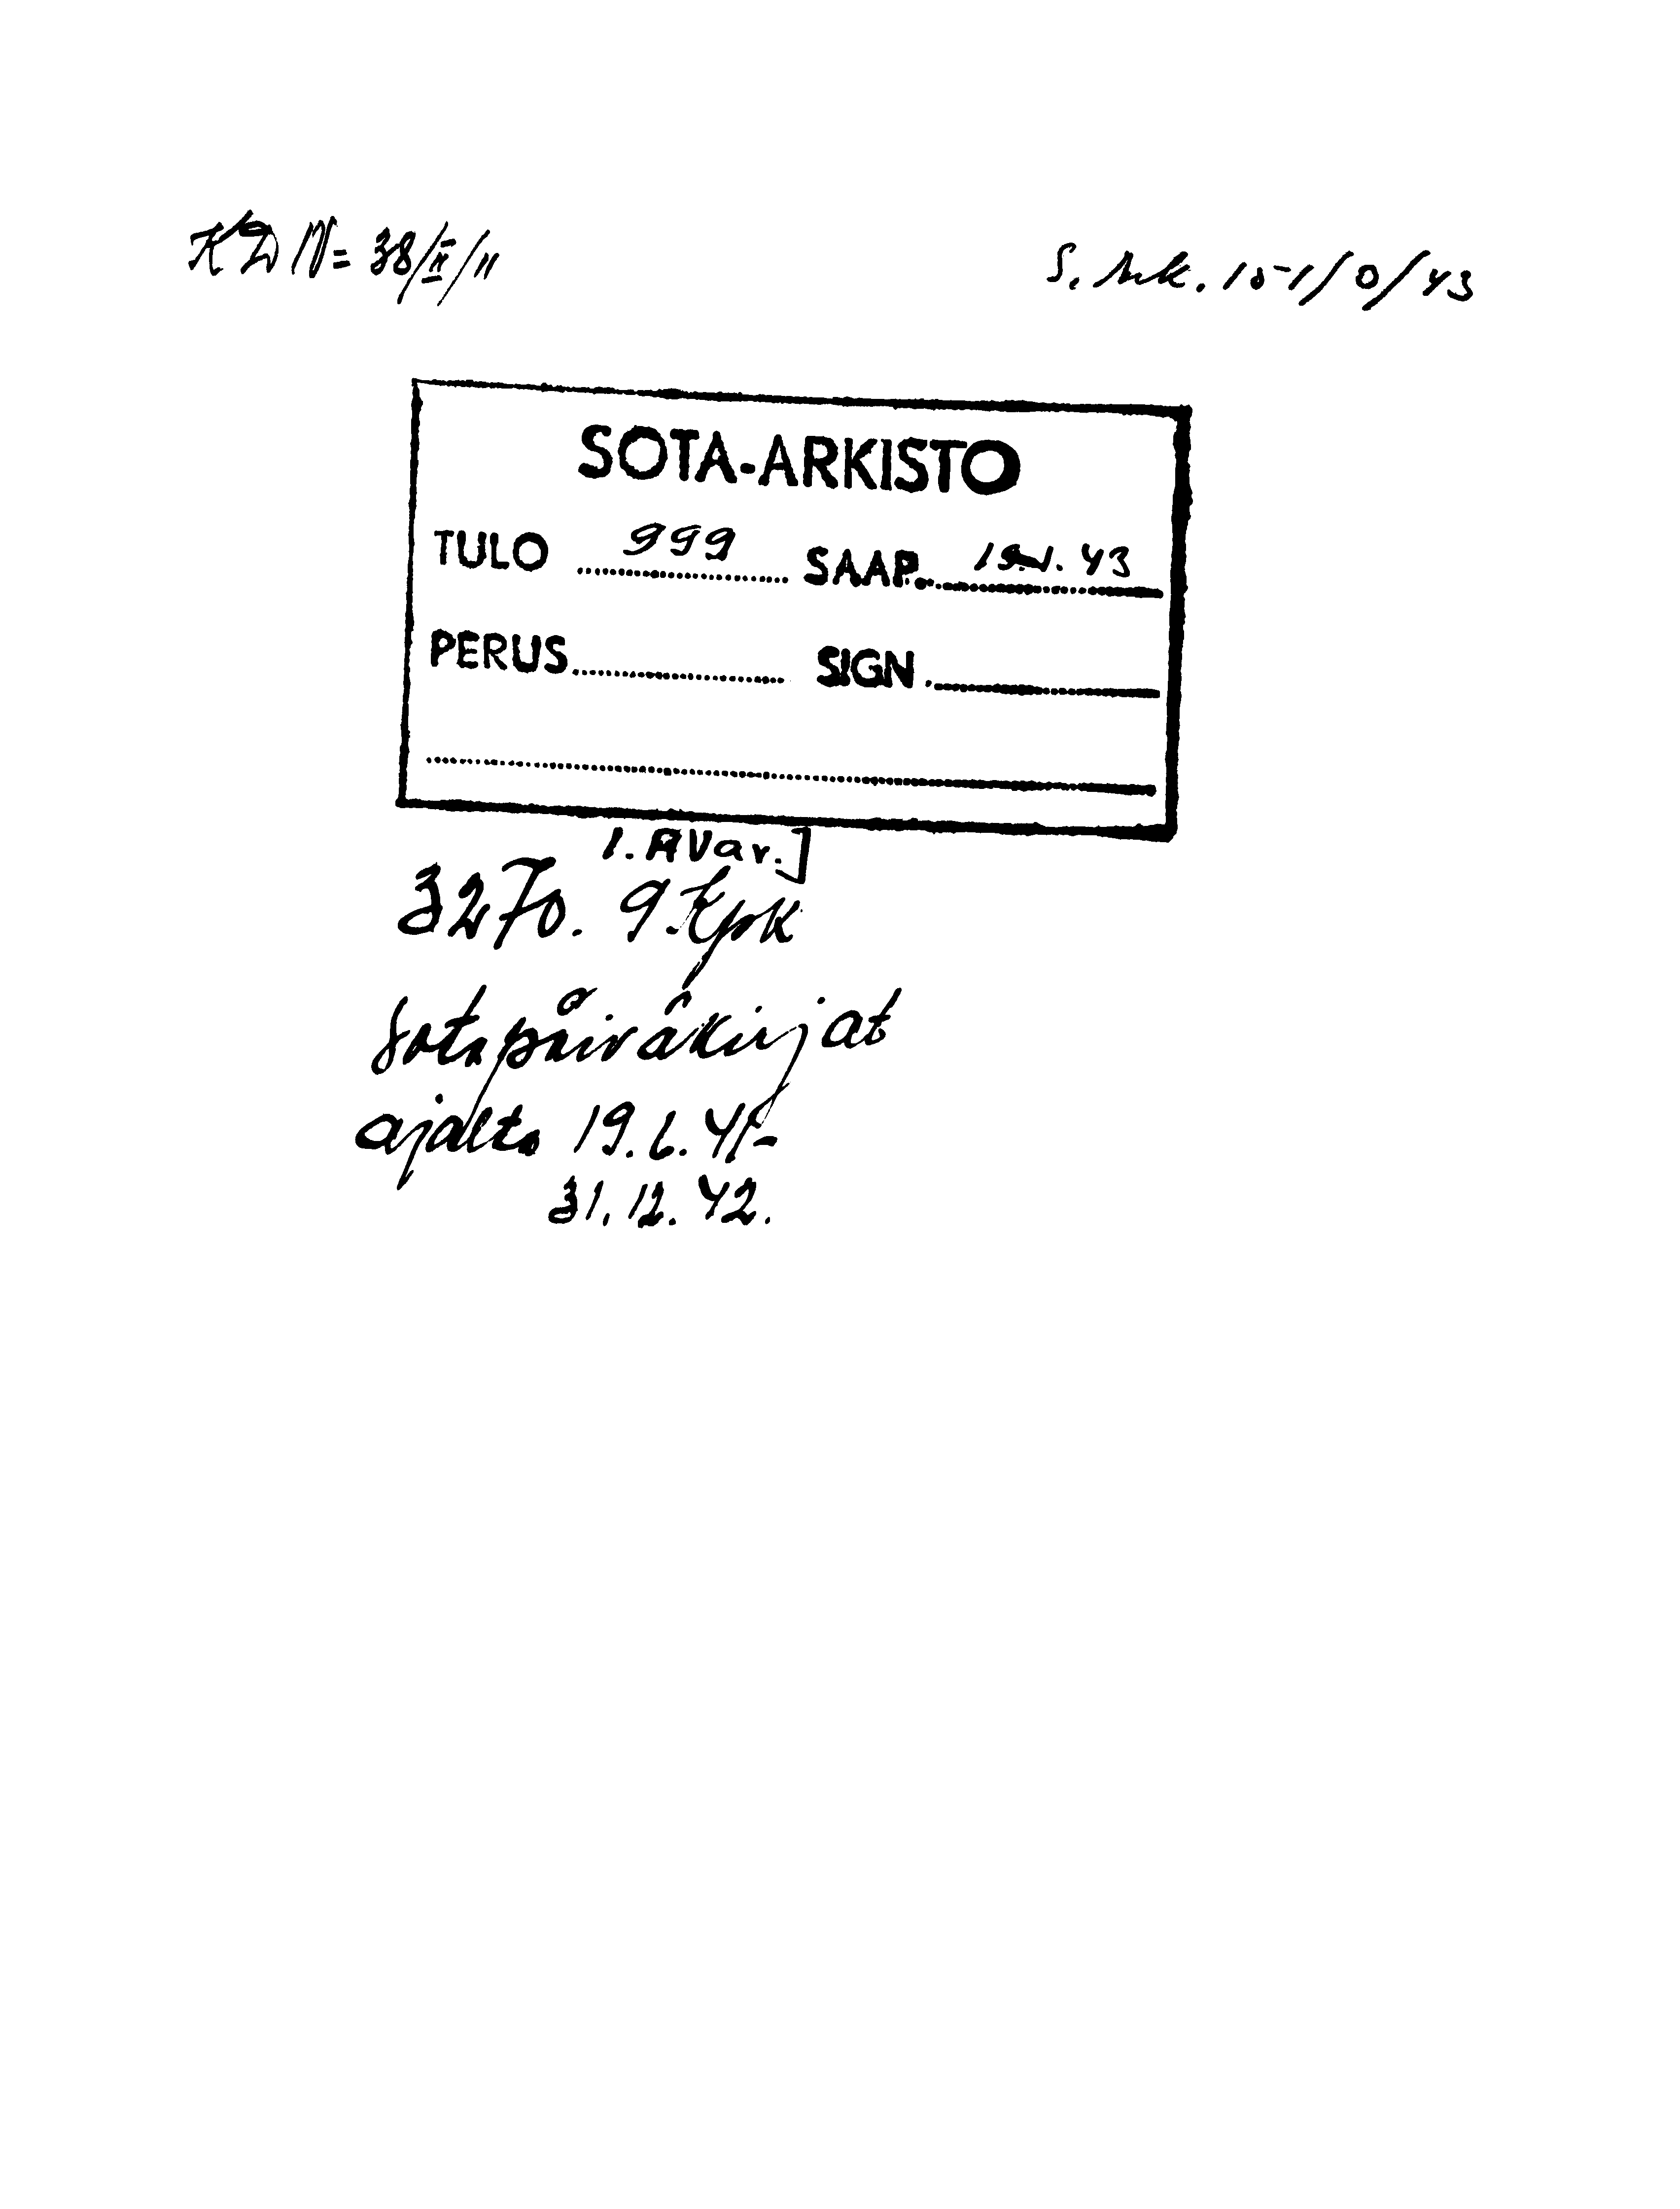 KD № 38/II/11
S. Ark. 151/0/43
SOTA-ARKISTO
TULO 999 SAAP. 43
PERUS SIGN.
1. AVar.]
3270. 9.Kpk
Sotapäiväkirjat
ajalta 19.6.41-
31.12.42.